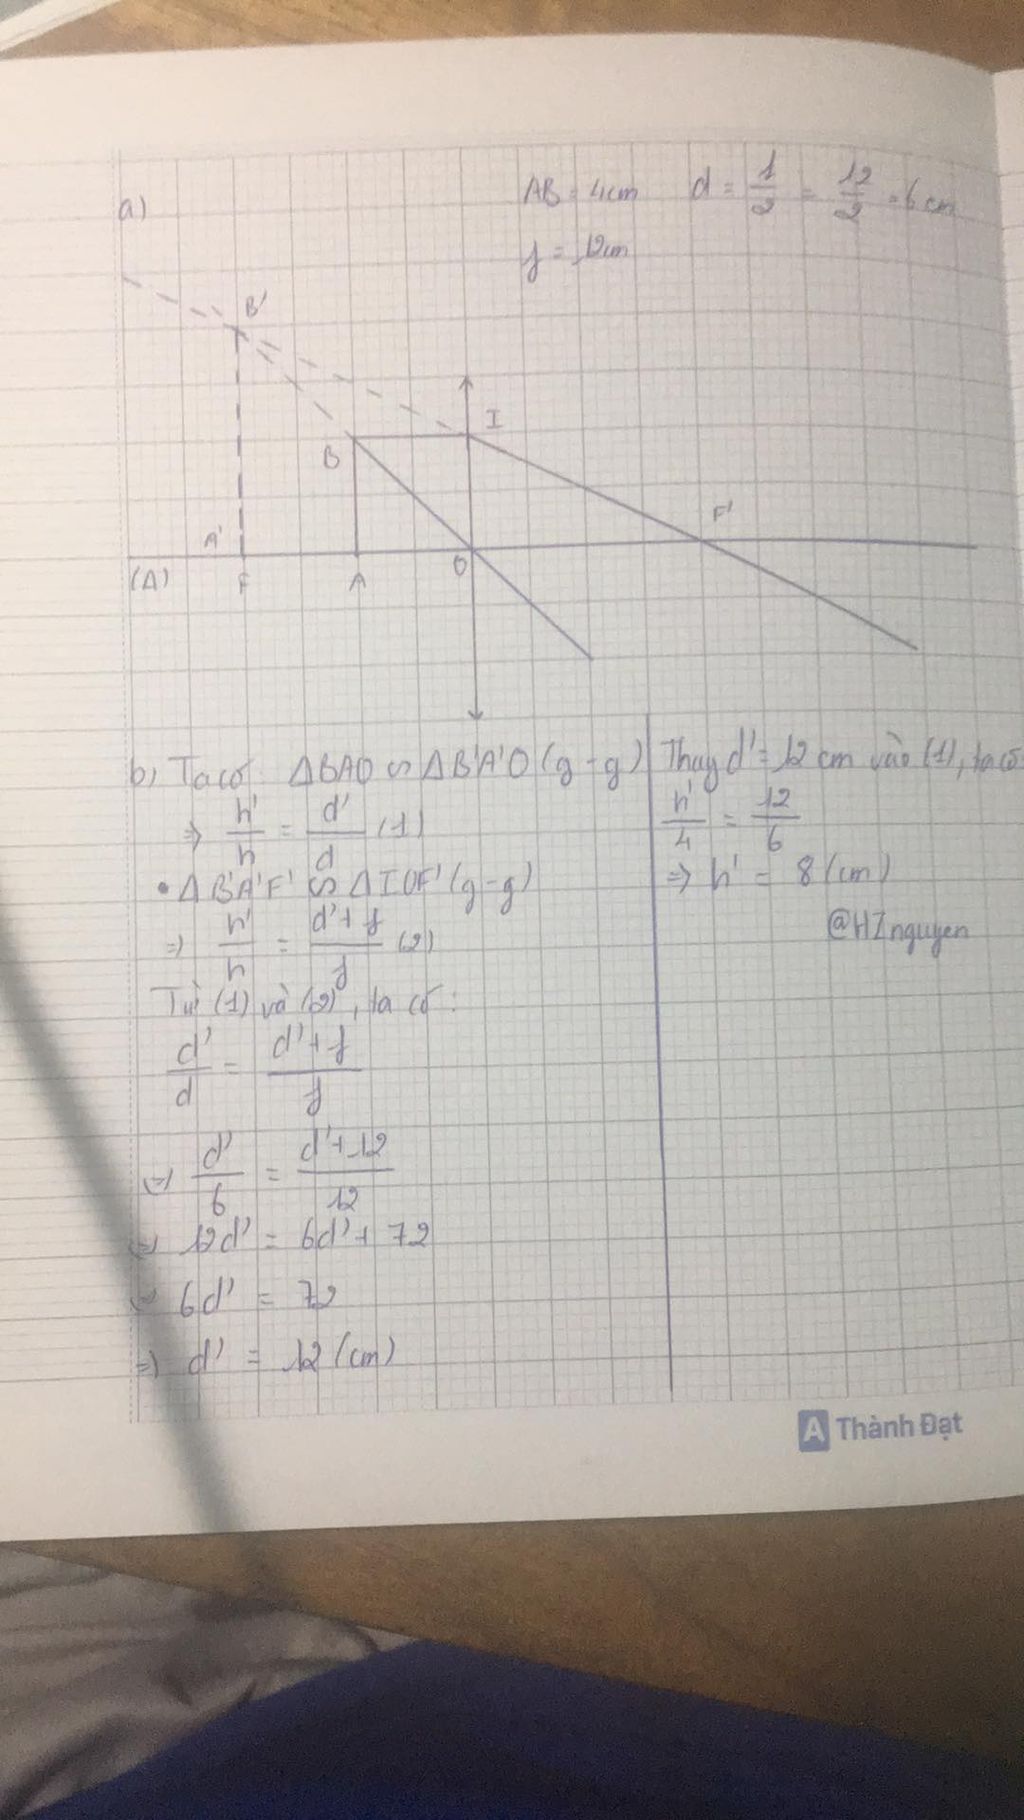 a)
AB = 4cm d = 1/2 = 12/2 = 6 cm
f = 12cm
B'
I
B
F'
A'
O
(Δ) F A
b) Ta có ΔBAO ∽ ΔB'A'O (g-g)
⇒ h'/h = d'/d (1)
• ΔB'A'F' ∽ ΔIOF' (g-g)
⇒ h'/h = d'+f/f (2)
Từ (1) và (2), ta có:
d'/d = d'+f/f
⇒ d'/6 = d'+12/12
⇒ 12d' = 6d' + 72
⇒ 6d' = 72
⇒ d' = 12 (cm)
Thay d' = 12 cm vào (1), ta có
h'/4 = 12/6
⇒ h' = 8 (cm)
@HInguyen
A Thành Đạt